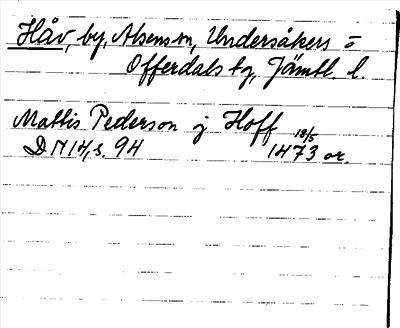 Håv, by, Alsens sn, Undersåkers o
Offerdals tg, Jämtl. l.
Mattis Pederson j Hoff
18/5
DN 14, s. 94 1473 or.